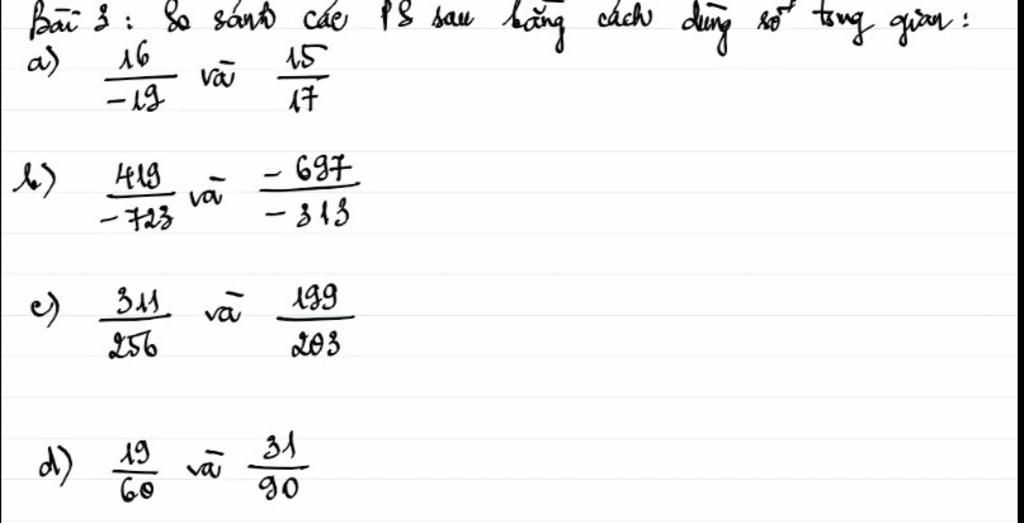 Bài 3: So sánh các PS sau bằng cách dùng số trung gian:
a) 16/-19 và 15/17
b) 419/-723 và -697/-313
c) 311/256 và 199/203
d) 19/60 và 31/90